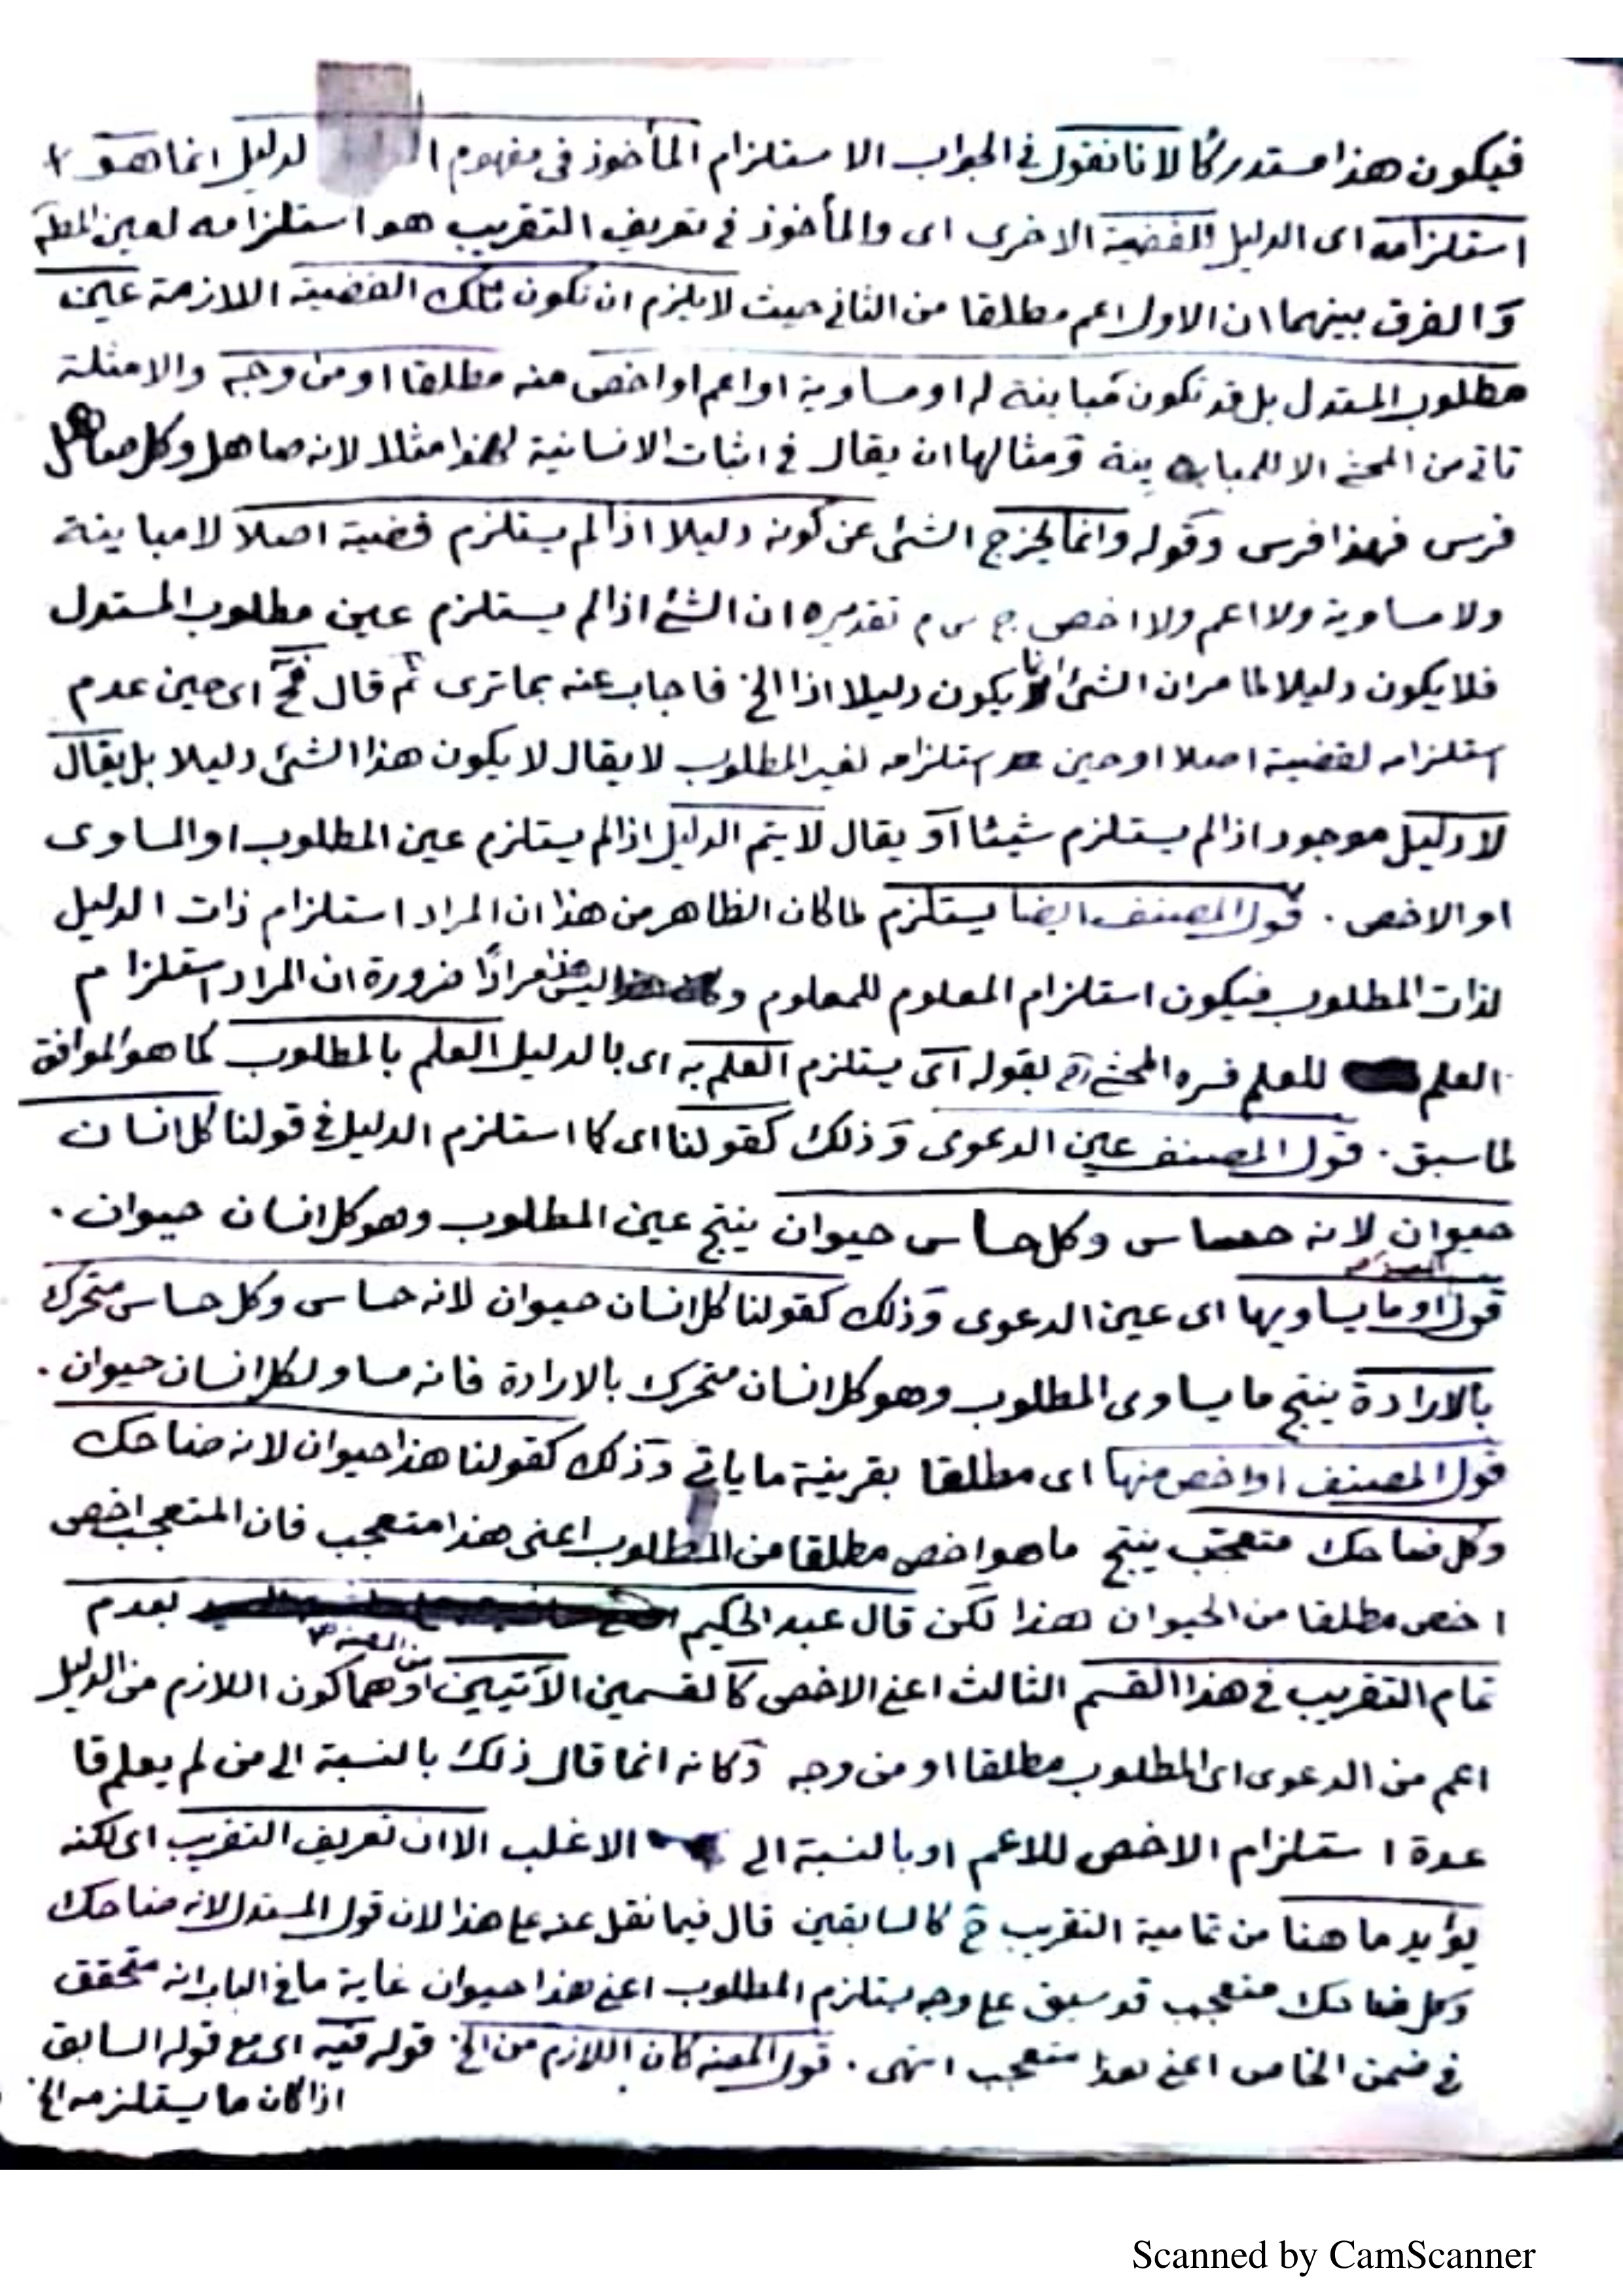 فيكون هذا مستدركا لانا نقول في الجواب الاستلزام المأخوذ في مفهوم الدليل انما هو
استلزامه اى الدليل للقضية الاخرى اى والمأخوذ في تعريف التقريب هو استلزامه لعين المط
والفرق بينهما ان الاول اعم مطلقا من الثاني حيث لا يلزم ان تكون تلك القضية اللازمة عين
مطلوب المستدل بل قد تكون مباينة له او مساوية او اعم او اخص منه مطلقا او من وجه والامثلة
تاتي من المحشي الا للمباينة ومثالها ان يقال في اثبات الانسانية لهذا مثلا لانه صاهل وكل صاهل
فرس فهذا فرس وقوله وانما يخرج الشئ عن كونه دليلا اذا لم يستلزم قضية اصلا لا مباينة
ولا مساوية ولا اعم ولا اخص ج س م تقديره ان الشئ اذا لم يستلزم عين مطلوب المستدل
فلا يكون دليلا لما مر ان الشئ انما يكون دليلا اذا الخ فاجاب عنه بما ترى ثم قال فح اى حين عدم
استلزامه لقضية اصلا او حين استلزامه لغير المطلوب لا يقال لا يكون هذا الشئ دليلا بل يقال
لا دليل موجود اذا لم يستلزم شيئا او يقال لا يتم الدليل اذا لم يستلزم عين المطلوب او المساوى
او الاخص . قول المصنف ايضا يستلزم لما كان الظاهر من هذا ان المراد استلزام ذات الدليل
لذات المطلوب فيكون استلزام المعلوم للمعلوم و ليس هذا مرادًا ضرورة ان المراد استلزام
العلم للعلم فسره المحشي رح بقوله اى يستلزم العلم به اى بالدليل العلم بالمطلوب كما هو الموافق
لما سبق . قول المصنف عين الدعوى وذلك كقولنا اى كاستلزام الدليل في قولنا كل انسان
حيوان لانه حساس وكل حساس حيوان ينتج عين المطلوب وهو كل انسان حيوان .
قول المصنف او ما يساويها اى عين الدعوى وذلك كقولنا كل انسان حيوان لانه حساس وكل حساس متحرك
بالارادة ينتج ما يساوى المطلوب وهو كل انسان متحرك بالارادة فانه مساو لكل انسان حيوان .
قول المصنف او اخص منها اى مطلقا بقرينة ما ياتي وذلك كقولنا هذا حيوان لانه ضاحك
وكل ضاحك متعجب ينتج ما هو اخص مطلقا من المطلوب اعنى هذا متعجب فان المتعجب اخص
اخص مطلقا من الحيوان هذا لكن قال عبد الحكيم بعدم
تمام التقريب في هذا القسم الثالث اعني الاخص كالقسمين الآتيين من المصنف وهما كون اللازم من الدليل
اعم من الدعوى اى المطلوب مطلقا او من وجه وكانه انما قال ذلك بالنسبة الى من لم يعلم قا
عدة استلزام الاخص للاعم او بالنسبة الى الاغلب الا ان تعريف التقريب اى لكنه
يؤيد ما هنا من تمامية التقريب ح كالسابقين قال فيما نقل عنه على هذا لان قول المستدل لانه ضاحك
وكل ضاحك متعجب قد سبق على وجه يستلزم المطلوب اعني هذا حيوان غاية ما في الباب انه متحقق
في ضمن الخاص اعني هذا متعجب انتهى . قول المصنف كان اللازم من الخ قوله فيه اى مع قوله السابق
اذا كان ما يستلزمه الخ
Scanned by CamScanner